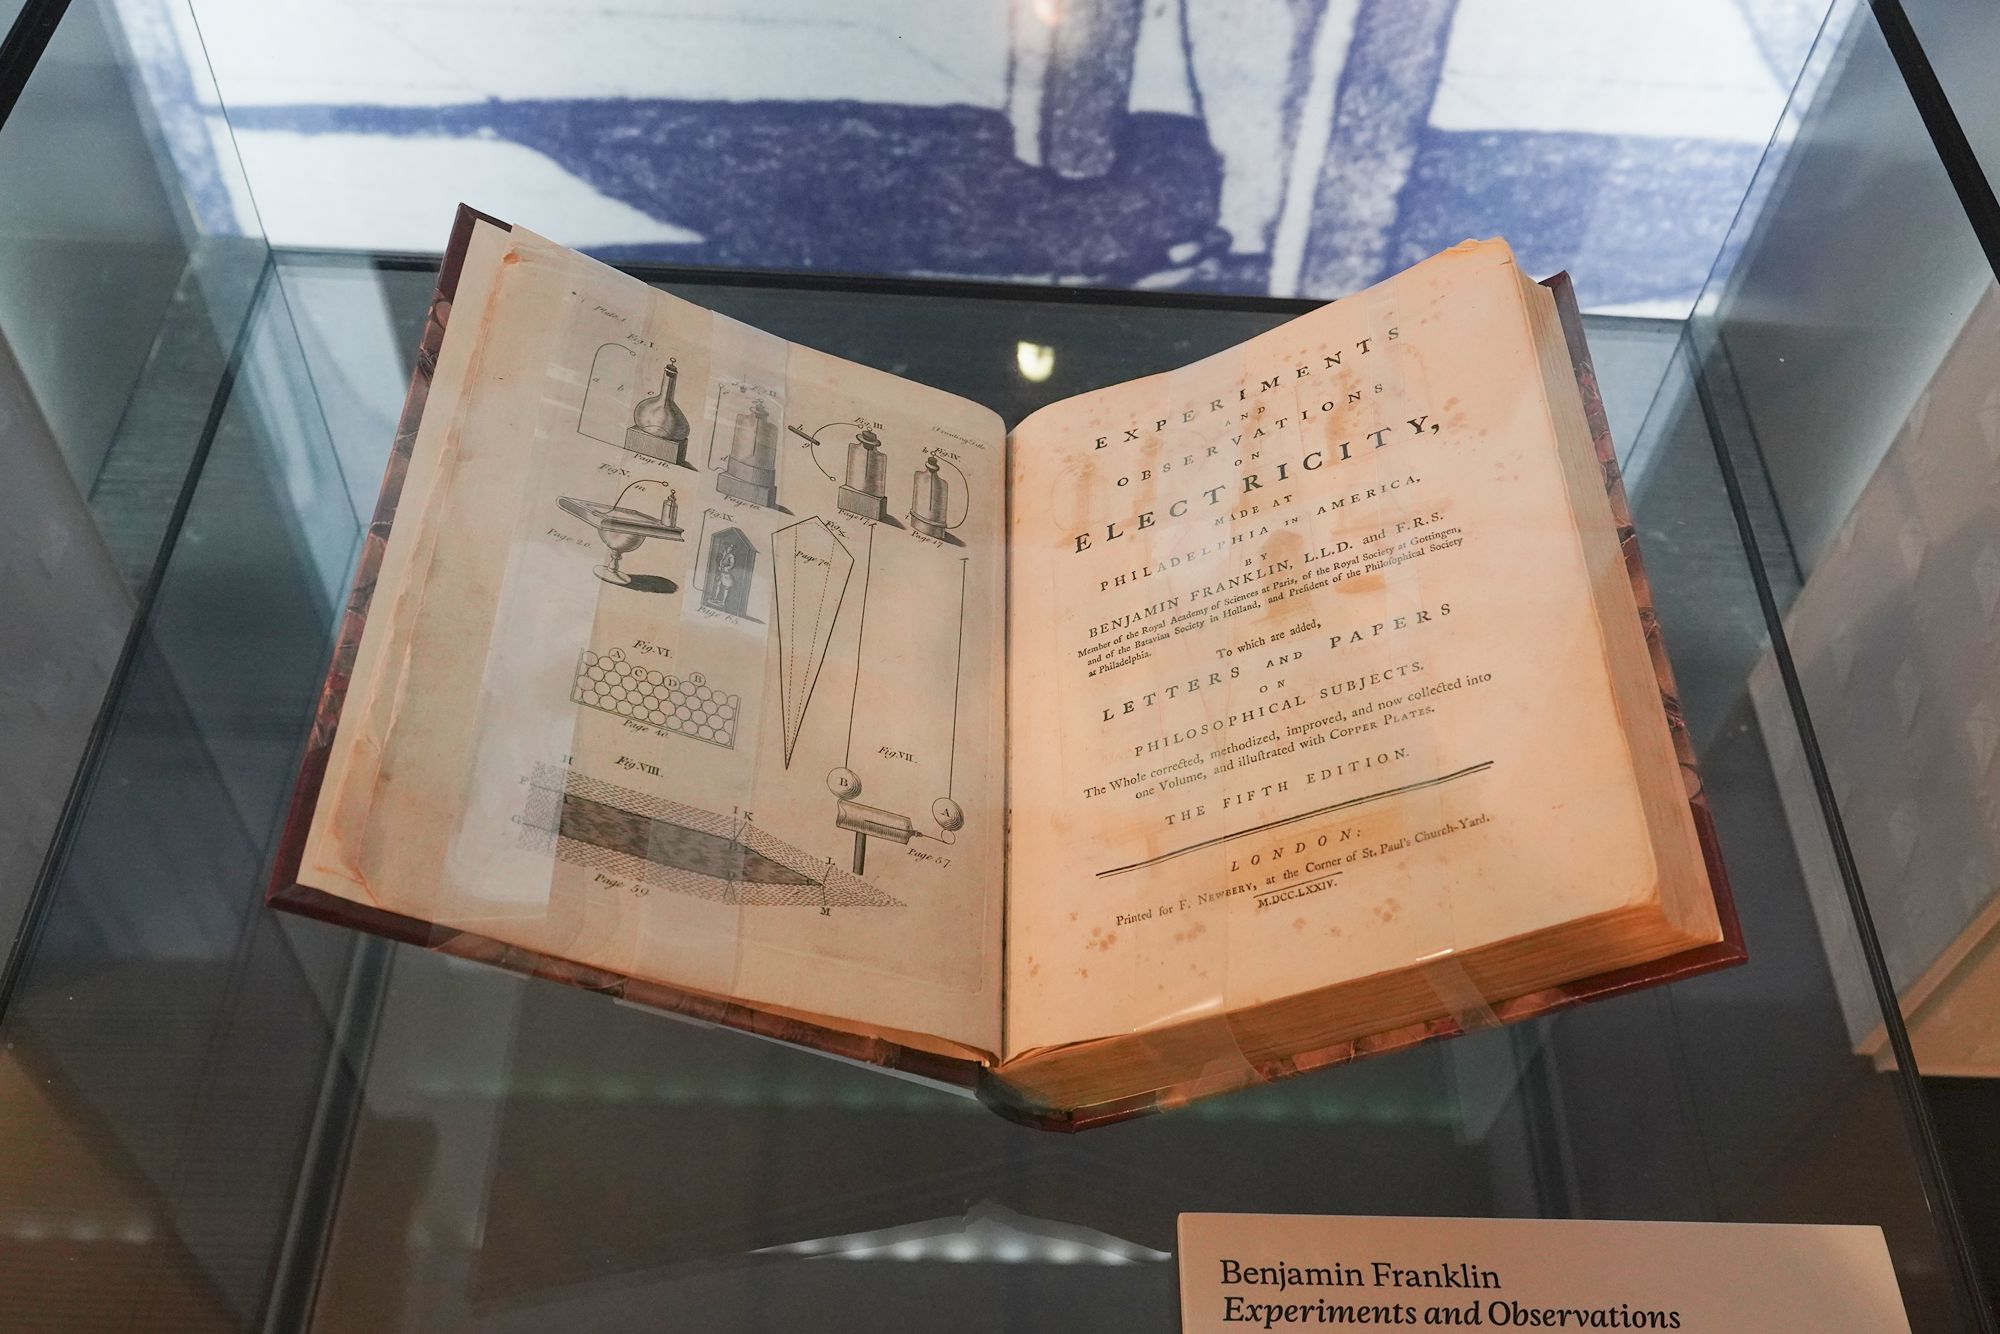 Plate I.
Fig. I.
a b c
Page 16.
Fig. II.
d
Page 16.
Fig. III.
h
g
Page 17.
Fronting Title
Fig. IV.
k
Page 17.
Fig. V.
m
Page 26.
Fig. IX.
Page 65.
Fig. X.
Page 70.
Fig. VI.
A C D B
Page 40.
Fig. VII.
B
A
Page 57.
Fig. VIII.
H
F
G
I K
L
M
Page 59.
EXPERIMENTS
AND
OBSERVATIONS
ON
ELECTRICITY,
MADE AT
PHILADELPHIA IN AMERICA,
BY
BENJAMIN FRANKLIN, L.L.D. and F.R.S.
Member of the Royal Academy of Sciences at Paris, of the Royal Society at Gottingen,
and of the Batavian Society in Holland, and Preſident of the Philoſophical Society
at Philadelphia.
To which are added,
LETTERS AND PAPERS
ON
PHILOSOPHICAL SUBJECTS.
The Whole corrected, methodized, improved, and now collected into
one Volume, and illuſtrated with COPPER PLATES.
THE FIFTH EDITION.
LONDON:
Printed for F. NEWBERY, at the Corner of St. Paul's Church-Yard.
M.DCC.LXXIV.
Benjamin Franklin
Experiments and Observations